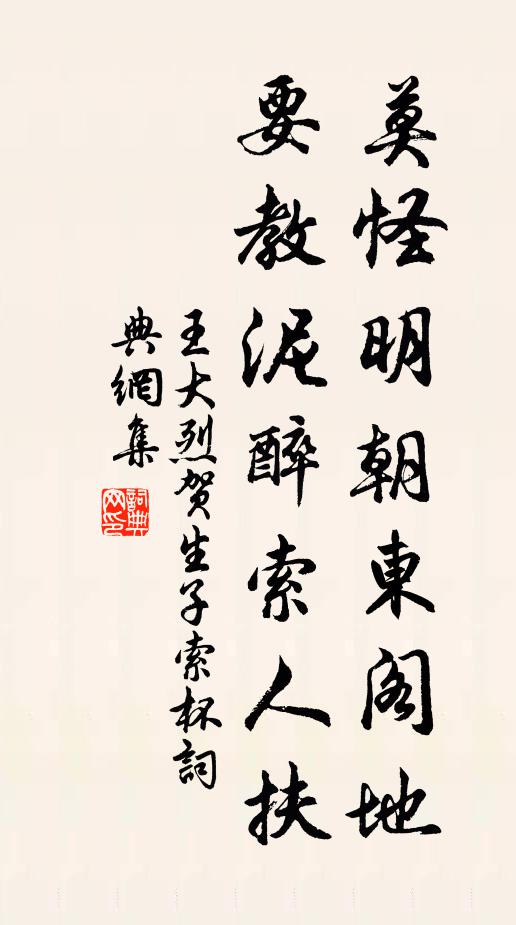 莫怪明朝東阁地
要教泥醉索人扶
王大烈贺生子索杯詞
典網集
詞典网印